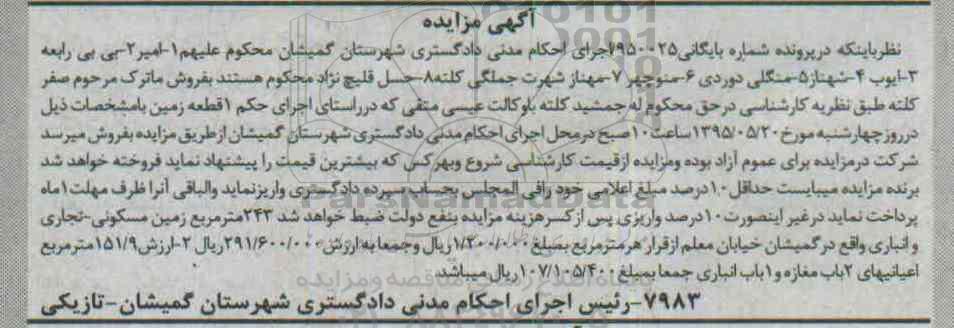 آگهی مزایده
نظرباینکه درپرونده شماره بایگانی۹۵۰۰۲۵اجرای احکام مدنی دادگستری شهرستان گمیشان محکوم علیهم۱-امیر۲-بی بی رابعه
۳-ایوب ۴-شهناز۵-منگلی دوردی ۶-منوچهر ۷-مهناز شهرت جملگی کلته۸-جسل قلیچ نژاد محکوم هستند بفروش ماترک مرحوم صفر
کلته طبق نظریه کارشناسی درحق محکوم له جمشید کلته باوکالت عیسی متقی که درراستای اجرای حکم ۱قطعه زمین بامشخصات ذیل
درروزچهارشنبه مورخ ۱۳۹۵/۰۵/۲۰ساعت۱۰صبح درمحل اجرای احکام مدنی دادگستری شهرستان گمیشان ازطریق مزایده بفروش میرسد
شرکت درمزایده برای عموم آزاد بوده ومزایده ازقیمت کارشناسی شروع وبهرکس که بیشترین قیمت را پیشنهاد نماید فروخته خواهد شد
برنده مزایده میبایست حداقل ۱۰درصد مبلغ اعلامی خود رافی المجلس بحساب سپرده دادگستری واریزنماید والباقی آنرا ظرف مهلت ۱ماه
پرداخت نماید درغیر اینصورت ۱۰درصد واریزی پس ازکسرهزینه مزایده بنفع دولت ضبط خواهد شد ۲۴۳مترمربع زمین مسکونی-تجاری
و انباری واقع درگمیشان خیابان معلم ازقرار هرمترمربع بمبلغ ۱/۲۰۰/۰۰۰ریال وجمعا به ارزش ۲۹۱/۶۰۰/۰۰۰ریال ۲-ارزش۱۵۱/۹مترمربع
اعیانیهای ۲باب مغازه و۱باب انباری جمعا بمبلغ ۱۰۷/۱۰۵/۴۰۰ریال میباشد
۷۹۸۳-رئیس اجرای احکام مدنی دادگستری شهرستان گمیشان-تازیکی
ParsNamadData